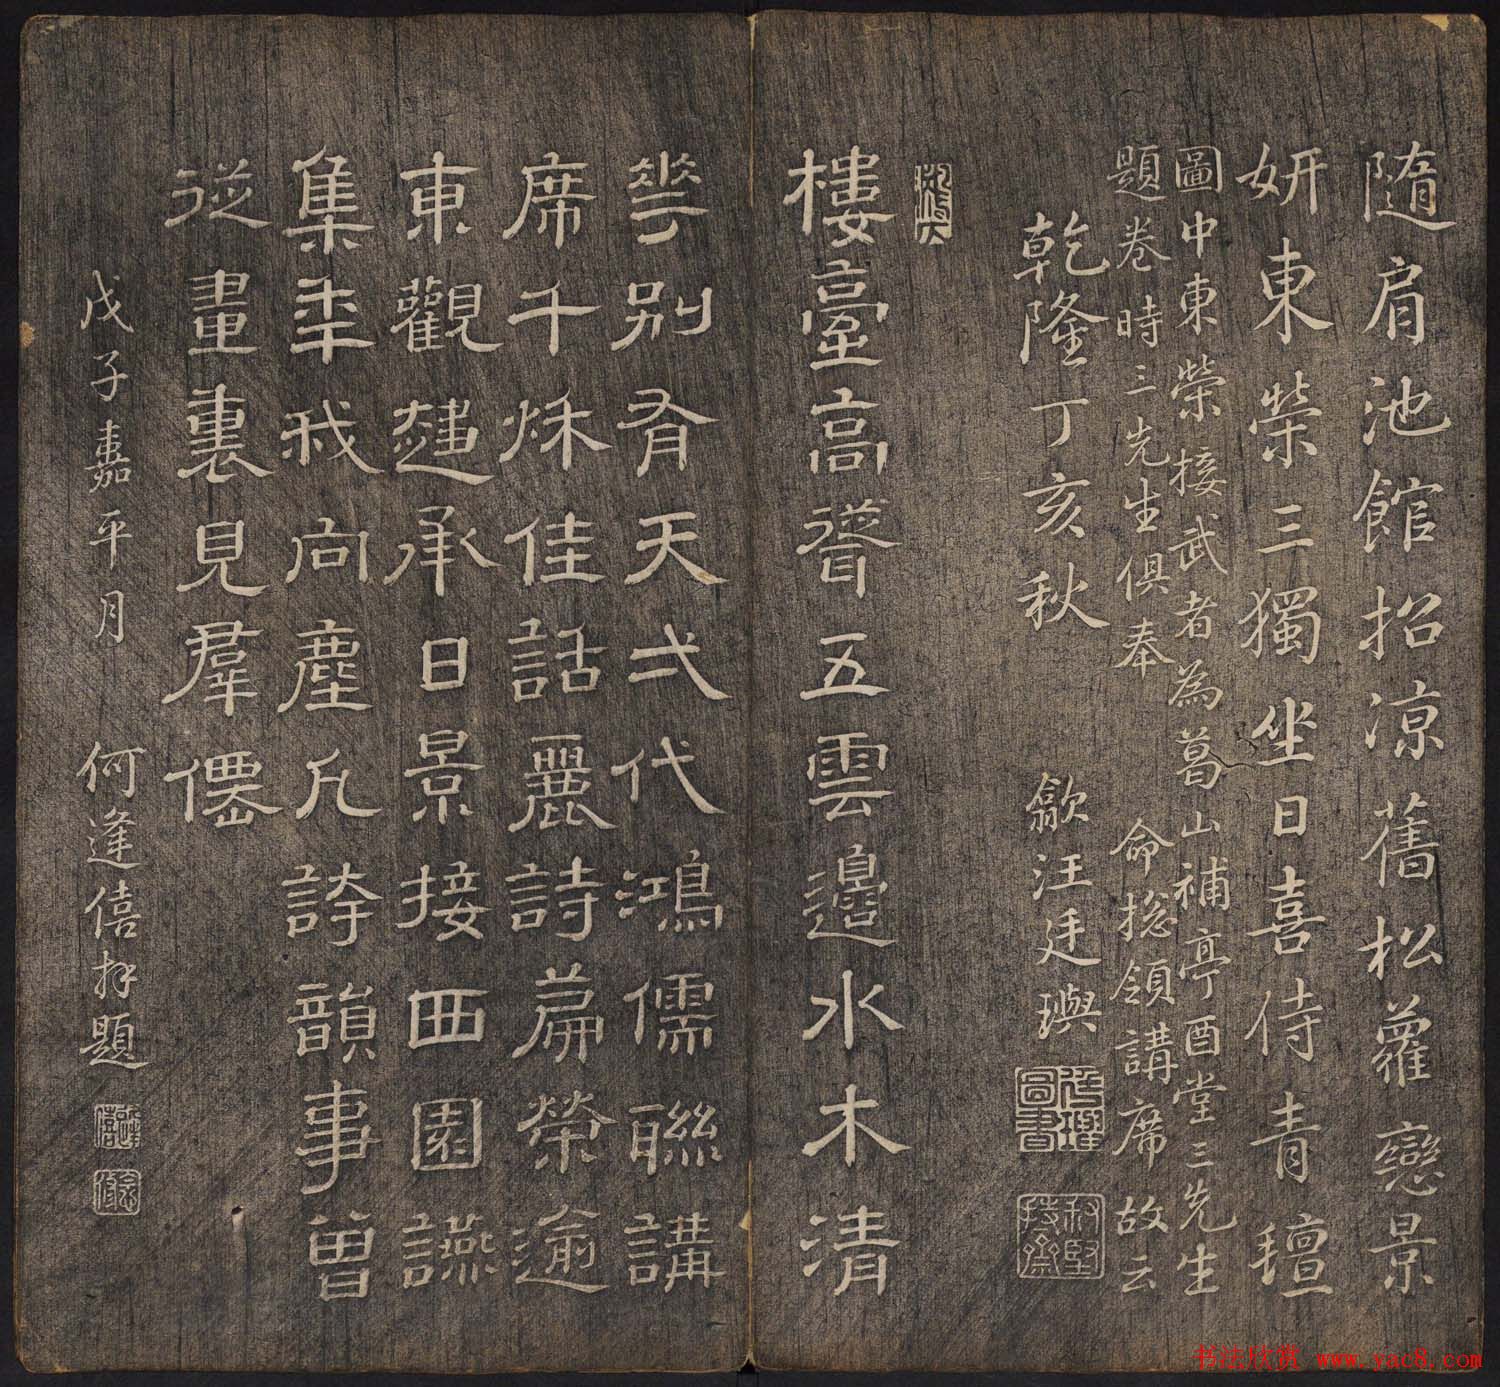 隨肩池館招涼舊松蘿戀景
妍東榮三獨坐日喜侍青氊
圖中東榮接武者為葛山補亭酉堂三先生
題卷時三先生俱奉命捴領講席故云
乾隆丁亥秋
歙汪廷璵
樓臺高聳五雲邊水木清
華別有天弌代鴻儒聯講
席千秌佳話麗詩篇榮逾
東觀趨承日景接西園讌
集年我向塵凡誇韻事曾
從畫裏見羣僊
戊子嘉平月
何逢僖拜題
书法欣赏 www.yac8.com